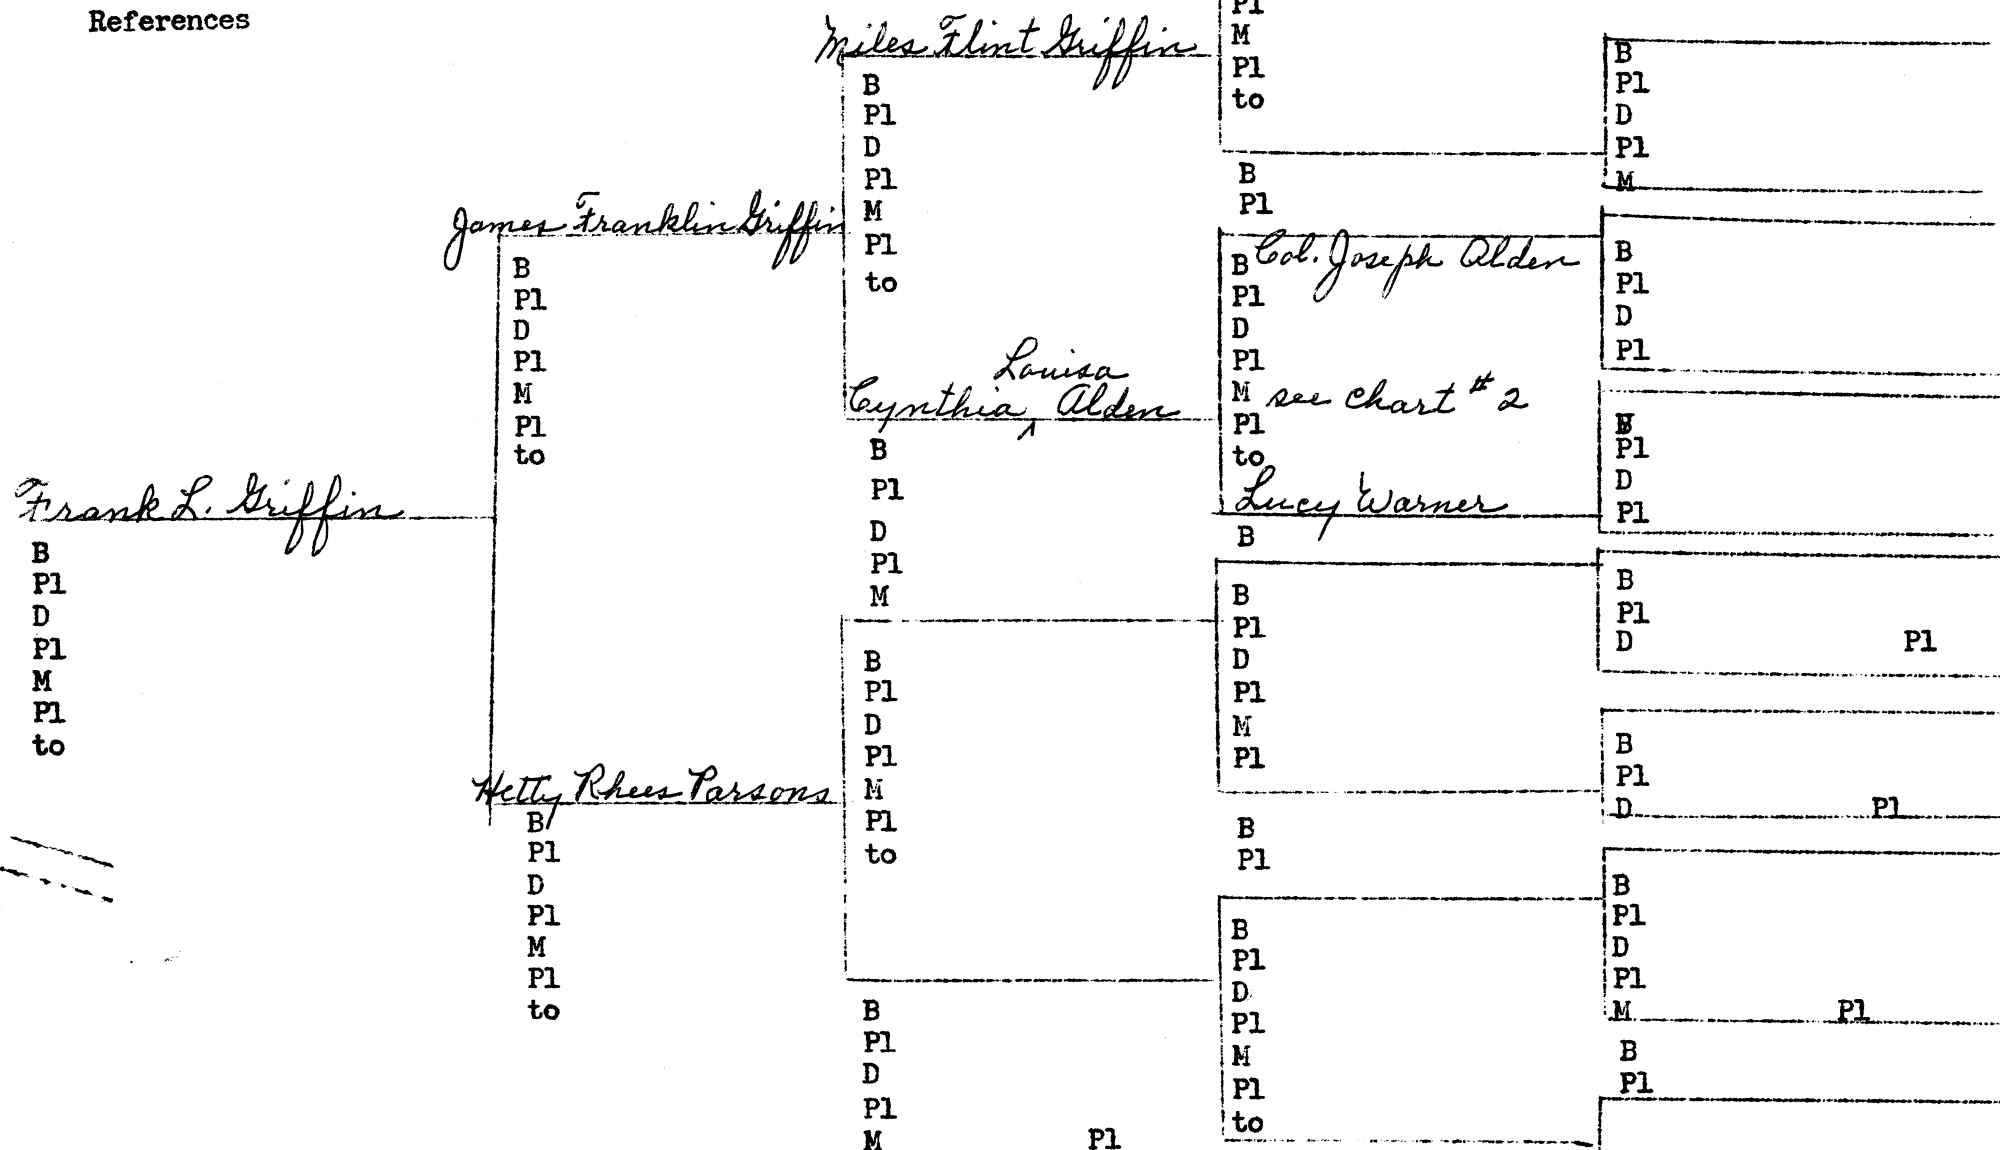 References
Frank L. Griffin
B
Pl
D
Pl
M
Pl
to
James Franklin Griffin
B
Pl
D
Pl
M
Pl
to
Hetty Rhees Parsons
B
Pl
D
Pl
M
Pl
to
Miles Flint Griffin
B
Pl
D
Pl
M
Pl
to
Louisa
Cynthia ^ Alden
B
Pl
D
Pl
M
B
Pl
D
Pl
M
Pl
to
B
Pl
D
Pl
M Pl
Pl
M
Pl
to
B
Pl
B Col. Joseph Alden
Pl
D
Pl
M see chart # 2
Pl
to
Lucy Warner
B
B
Pl
D
Pl
M
Pl
B
Pl
B
Pl
D
Pl
M
Pl
to
B
Pl
D
Pl
M
B
Pl
D
Pl
B
Pl
D
Pl
B
Pl
D Pl
B
Pl
D Pl
B
Pl
D
Pl
M Pl
B
Pl